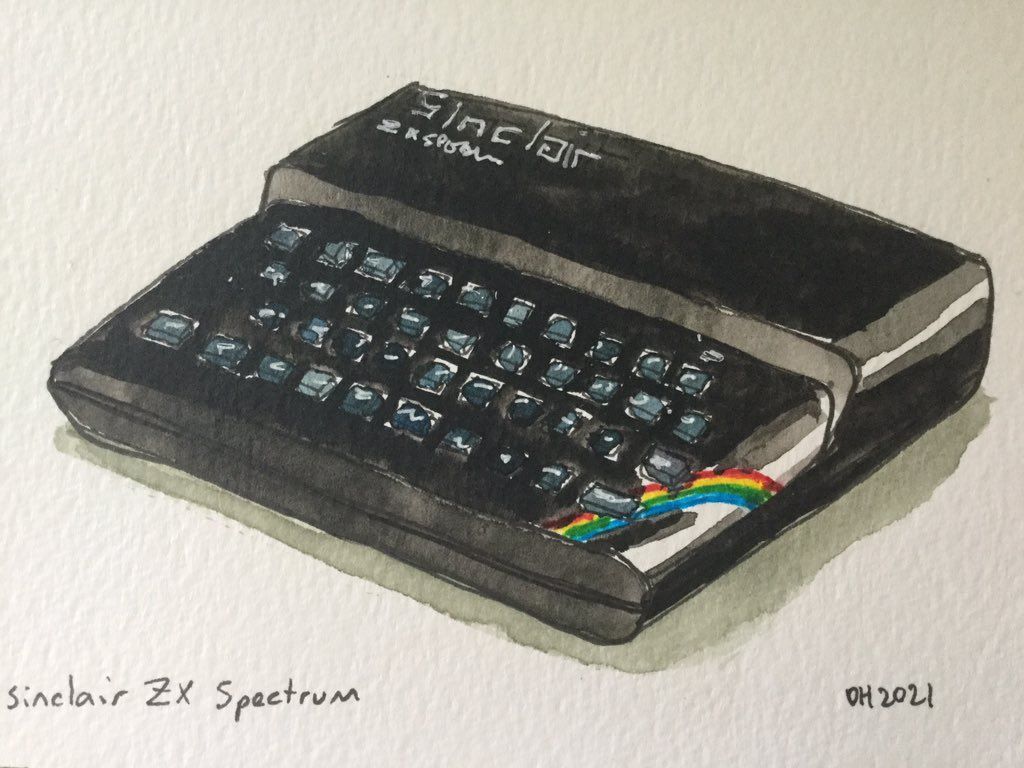 sinclair
ZX Spectrum
Sinclair ZX Spectrum
OH 2021